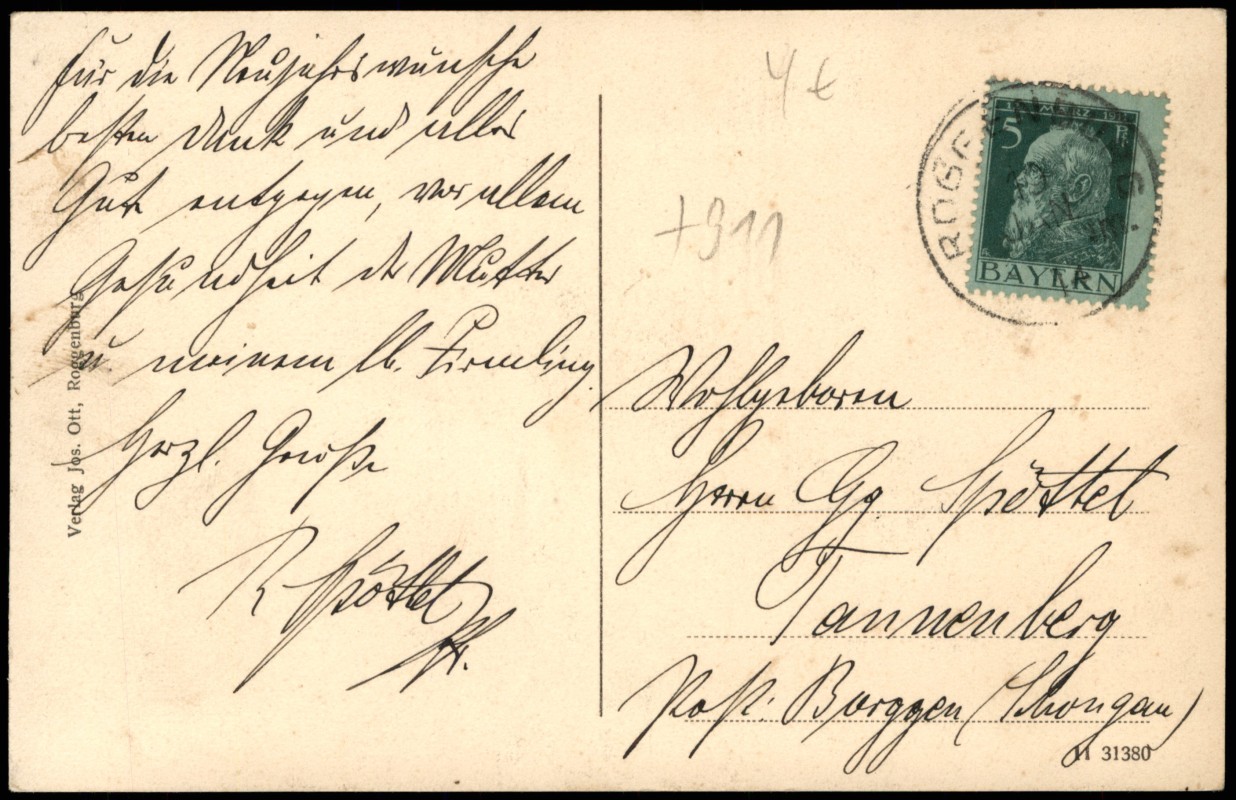 für die Neujahrswünsche
besten Dank und alles
Gute entgegen, vor allem
Gesundheit der Mutter
u meinem lb. Firmling.
Herzl. Grüße
R Spöttel
Pfr.
Verlag Jos. Ott, Roggenburg
4 €
+ 911
5 Pf
BAYERN
Wohlgeboren
Herrn Gg Spöttel
Tannenberg
Post: Burggen (Schongau)
31380